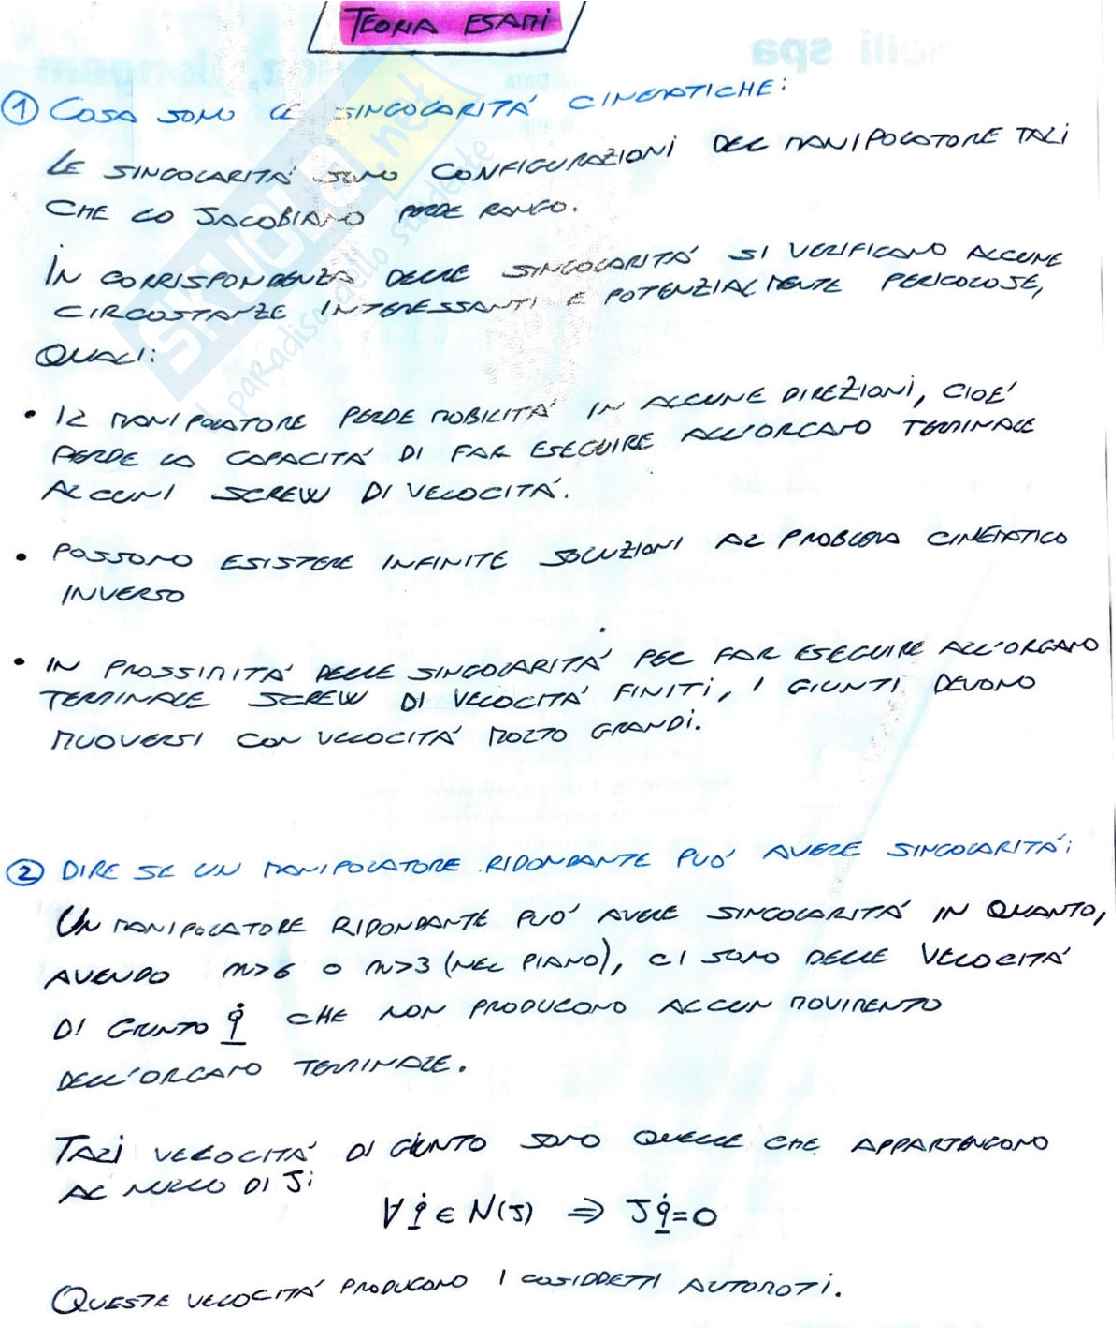 TEORIA ESAMI
① COSA SONO LE SINGOLARITÀ CINEMATICHE:
LE SINGOLARITÀ SONO CONFIGURAZIONI DEL MANIPOLATORE TALI
CHE LO JACOBIANO PERDE RANGO.
IN CORRISPONDENZA DELLE SINGOLARITÀ SI VERIFICANO ALCUNE
CIRCOSTANZE INTERESSANTI E POTENZIALMENTE PERICOLOSE,
QUALI:
• IL MANIPOLATORE PERDE MOBILITÀ IN ALCUNE DIREZIONI, CIOÈ
PERDE LA CAPACITÀ DI FAR ESEGUIRE ALL'ORGANO TERMINALE
ALCUNI SCREW DI VELOCITÀ.
• POSSONO ESISTERE INFINITE SOLUZIONI AL PROBLEMA CINEMATICO
INVERSO
• IN PROSSIMITÀ DELLE SINGOLARITÀ PER FAR ESEGUIRE ALL'ORGANO
TERMINALE SCREW DI VELOCITÀ FINITI, I GIUNTI DEVONO
MUOVERSI CON VELOCITÀ MOLTO GRANDI.
② DIRE SE UN MANIPOLATORE RIDONDANTE PUÒ AVERE SINGOLARITÀ:
UN MANIPOLATORE RIDONDANTE PUÒ AVERE SINGOLARITÀ IN QUANTO,
AVENDO n>6 O n>3 (NEL PIANO), CI SONO DELLE VELOCITÀ
DI GIUNTO q̇ CHE NON PRODUCONO ALCUN MOVIMENTO
DELL'ORGANO TERMINALE.
TALI VELOCITÀ DI GIUNTO SONO QUELLE CHE APPARTENGONO
AL NUCLEO DI J:
∀ q̇ ∈ N(J) ⇒ Jq̇=0
QUESTE VELOCITÀ PRODUCONO I COSIDDETTI AUTOMOTI.
SKUOLA.net
il paradiso dello studente